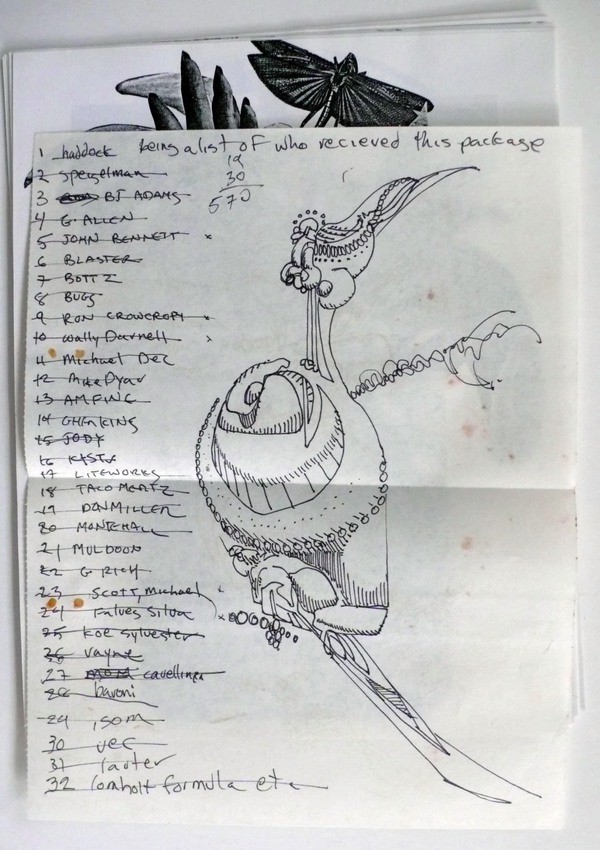 being a list of who recieved this package
19
30
570
1 haddock
2 speigelman
3 BJ ADAMS
4 G. ALLEN
5 JOHN BENNETT x
6 BLASTER
7 BOTTZ
8 BUGS
9 RON CROWCROFT x
10 Wally Darnell x
11 Michael Dec
12 Mike Dyar
13 AMFINC
14
15 JODY
16
17 LITEWORKS
18 TACO MEATZ
19 DON MILLER
20 MONTCHALL
21 MULDOON
22 G RICH
23 Scott, Michael
24 Falves Silva x
25 Koe Sylvester
26 Vayne
27 cavellini
28 baroni
29 isom
30 vec
31
32 formula etc